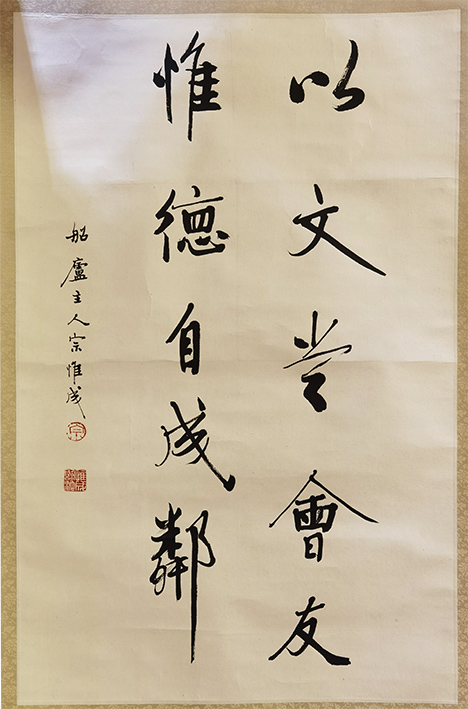 以文常會友
惟德自成鄰
船廬主人宗惟成